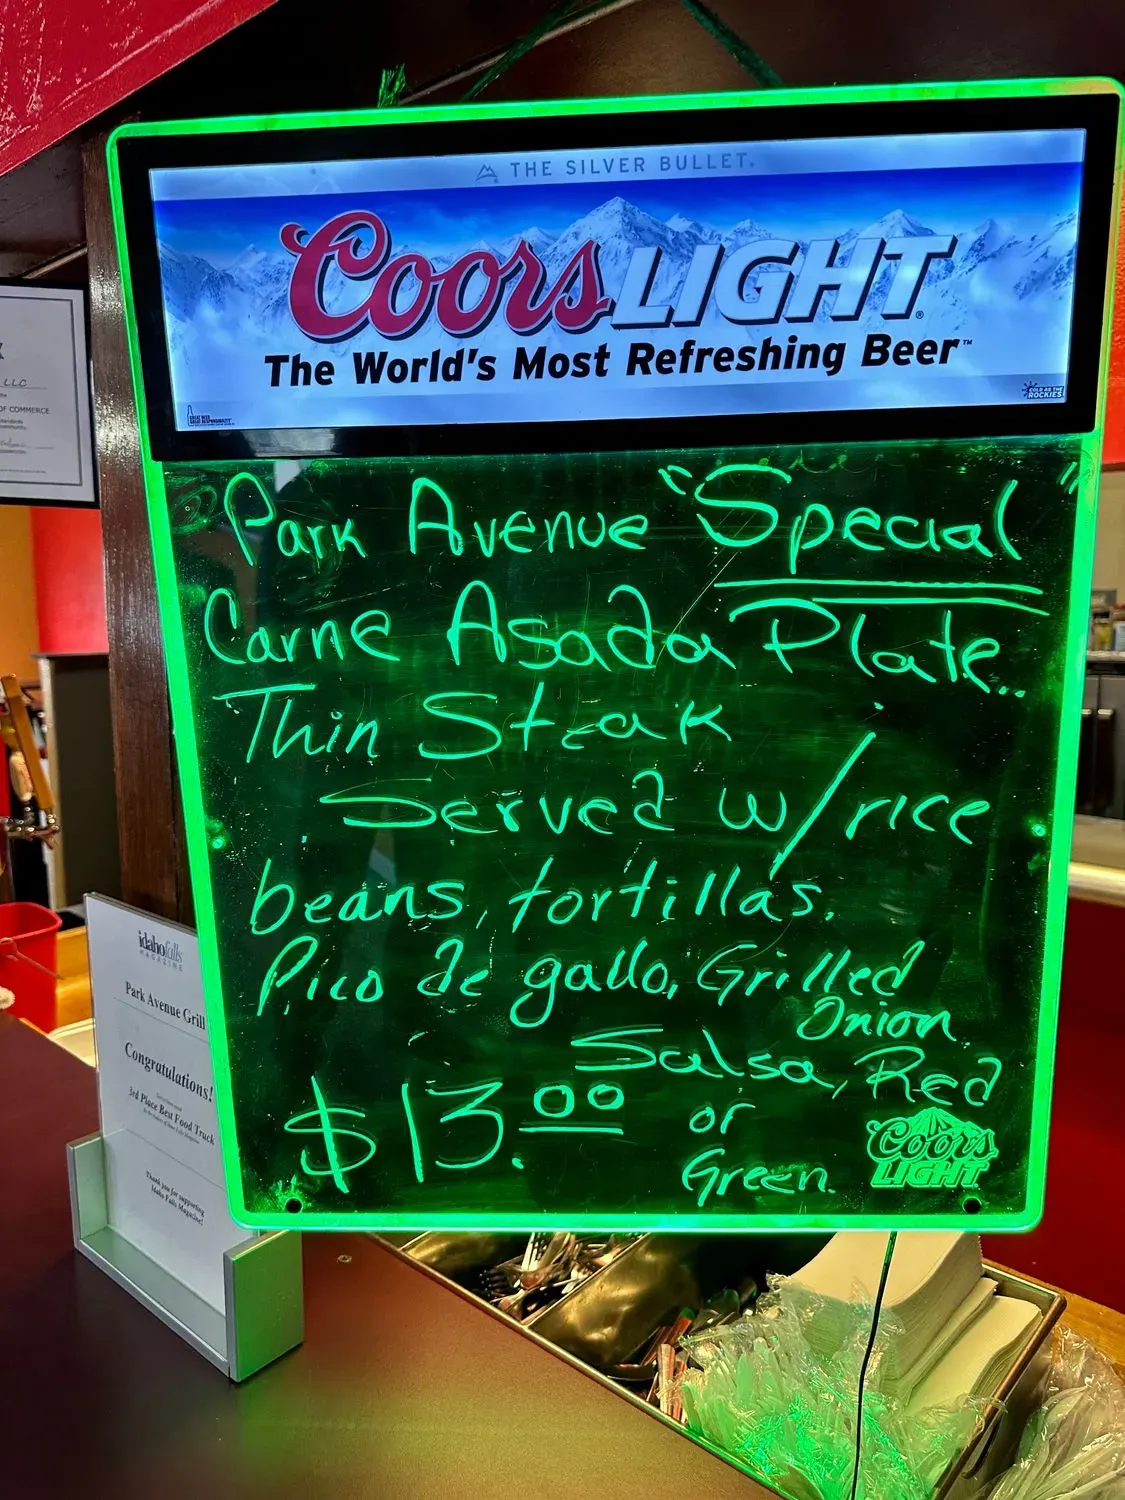 THE SILVER BULLET.
Coors LIGHT
The World's Most Refreshing Beer™
COLD AS THE
ROCKIES
GREAT BEER
GREAT RESPONSIBILITY
Park Avenue "Special"
Carne Asada Plate..
Thin Steak
Served w/rice
beans, tortillas.
Pico de gallo, Grilled
Onion.
Salsa, Red
or
Green.
$13.00
Coors
LIGHT
LLC
OF COMMERCE
idahofalls
MAGAZINE
Park Avenue Grill
Congratulations!
3rd Place Best Food Truck
Thank you for supporting
Idaho Falls Magazine!